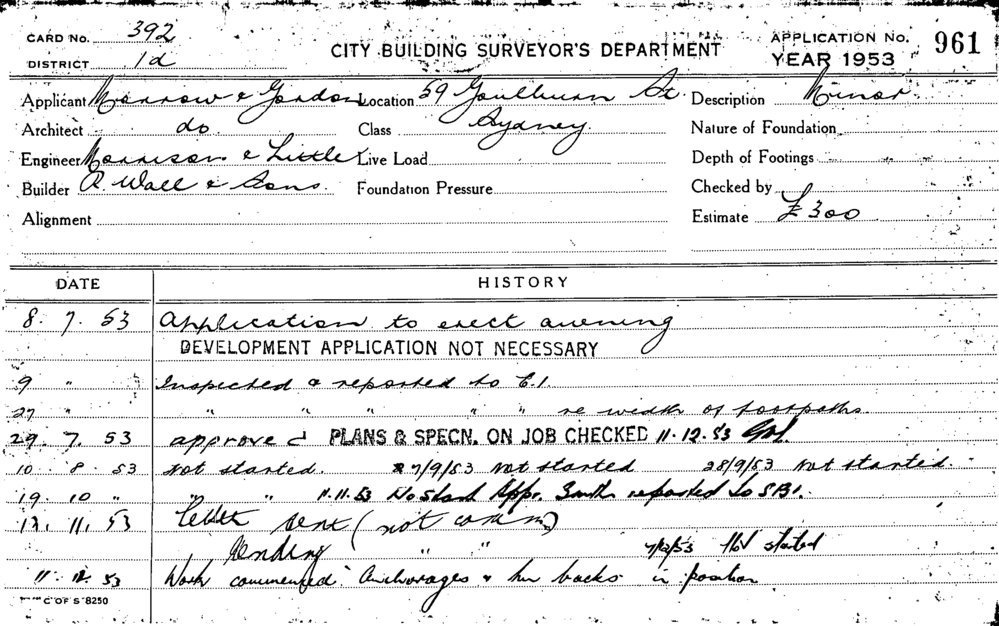 CARD No. 392
DISTRICT 1d
CITY BUILDING SURVEYOR'S DEPARTMENT
APPLICATION No. 961
YEAR 1953
Applicant Morrow & Gordon Location 59 Goulburn St. Description Minor
Architect do Class Sydney. Nature of Foundation
Engineer Morrison & Little Live Load Depth of Footings
Builder R. Wall & Sons. Foundation Pressure Checked by
Alignment Estimate £300
DATE HISTORY
8. 7. 53 Application to erect awning
DEVELOPMENT APPLICATION NOT NECESSARY
9 " Inspected & reported to C.I.
27 " " " " " " re width of footpaths.
29. 7. 53 approved PLANS & SPECN. ON JOB CHECKED 11.12.53
10 8 53 Not started. 7/9/53 Not started 28/9/53 Not started.
19. 10 " " " 11.11.53 No start Appr. 3 mths reported to S.B.I.
12. 11. 53 Letter sent (not comm)
Pending " " 7/12/53 Not started
11 12 53 Work commenced. Anchorages & in position
C OF S 8250